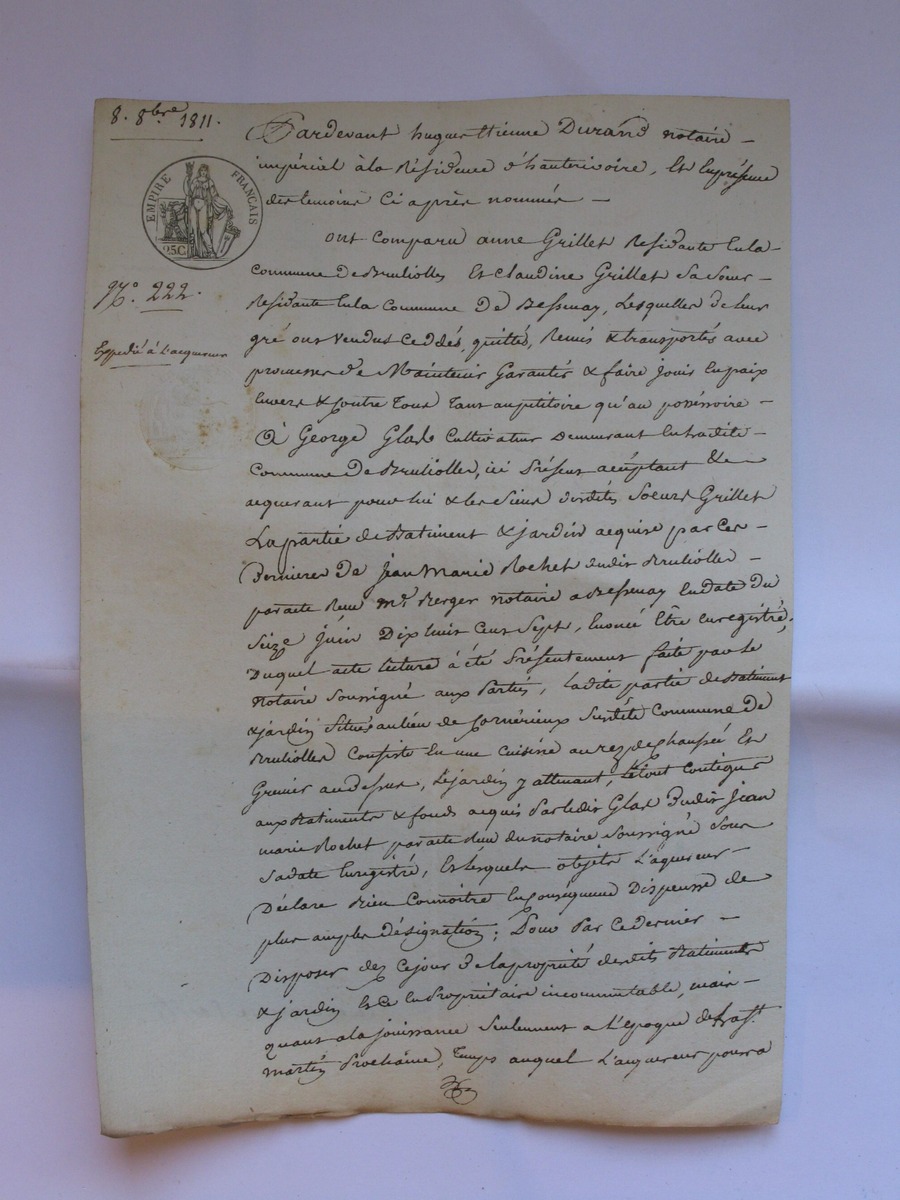 8. 8bre 1811.
EMPIRE FRANÇAIS
25C
N°. 222.
Expedié à L'acquereur
Pardevant hugues Etienne Durand notaire
impériel à la Résidence d'hauterivoire, Et En présence
des temoins Ci après nommés
ont comparu anne Grillet Residante En la
Commune de Brulioles Et Claudine Grillet Sa Soeur
Residante En la Commune De Bessenay, Lesquelles de leur
gré ont Vendus Ceddés, quittés, Remis & transportés avec
promesses de Maintenir Garantir & faire jouir En paix
Envers & Contre Tous Tant au pétitoire qu'au possessoire
à George Glas Cultivateur Demeurant En ladite
Commune De Brulioles, ici Présent acceptant &
acquerant pour lui & les Siens desdites Soeurs Grillet
La partie de Batiment & jardin acquise par Ces
Dernieres De Jean Marie Rochet dudit Brulioles
par acte Reçu Me. Berger notaire a Bessenay En date du
Seize Juin Dix huit Cent Sept, Enoncé Etre Enregistré,
Duquel acte lecture à été Présentement faite par le
notaire Soussigné aux Parties, ladite partie de Batiment
& jardin Situés au lieu de Cornérieux Susdite Commune De
Brulioles Consiste En une Cuisine au rez de Chaussée Et
Grenier au dessus, Le jardin y attenant, le tout Contigue
aux Batiments & fonds acquis Par ledit Glas Dudit Jean
marie Rochet par acte Reçu du notaire Soussigné Sous
Sa date Enregistré, Et lesquels objets L'aquereur
Déclare Bien Connoitre En Conséquence Dispense de
plus ample désignation; Pour Par Ce dernier
Disposer dez Cejour De la propriété desdits Batiments
& jardin Et Ce En Propriétaire incommutable, mais
quant a la jouissance Seulement a L'époque de la St.
martin Prochaine, Temps auquel L'aquereur pourra